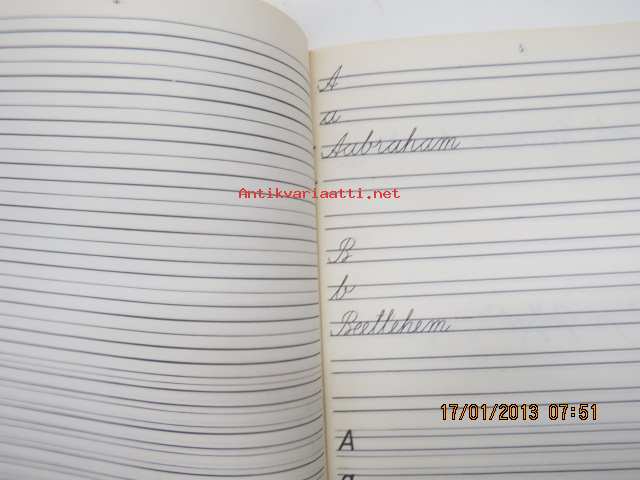 5
A
a
Aabraham
Antikvariaatti.net
B
b
Beetlehem
17/01/2013 07:51
A